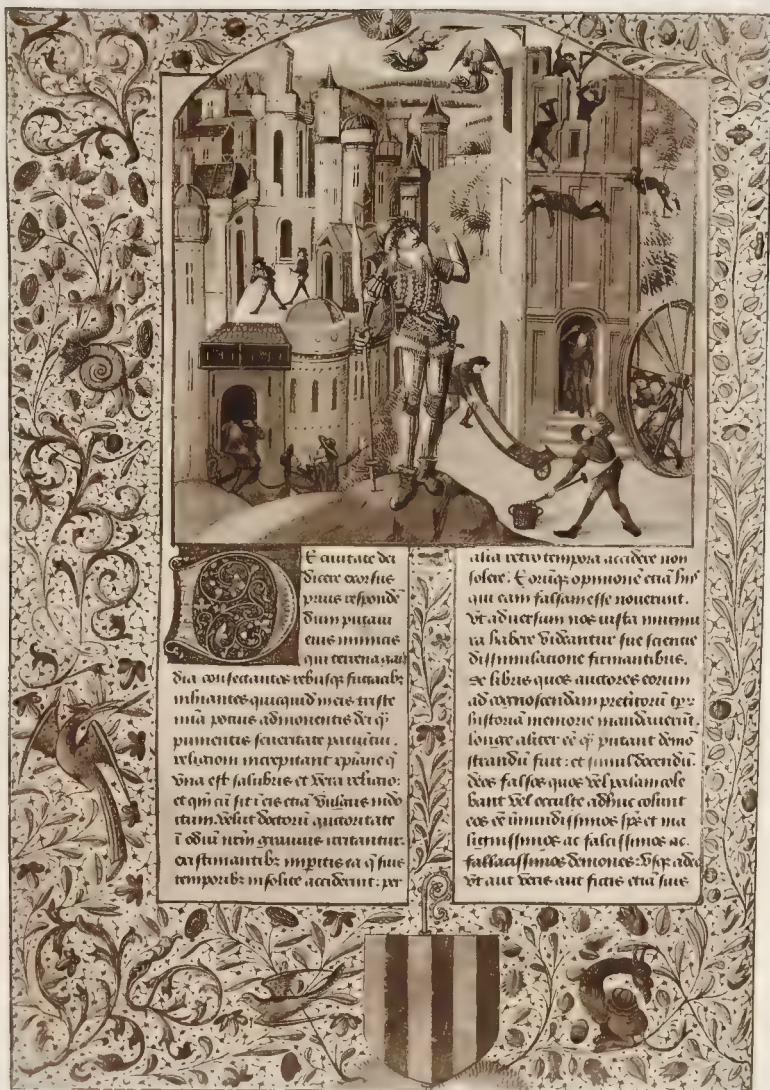 DE ciuitate dei
dicere exorsus
prius responde
dum putaui
eius inimicis
qui terrena gau
dia consectantes rebusq; fugacibz
inhiantes quicquid
potius admonentis dei q̄
punientis seueritate
religioni increpitant xpiane q̄
vna est salubris et vera religio:
et qm̄ cū sit ī eis etiā vulgus indo
ctum velut doctorū auctoritate
ī odiū nr̄m grauius irritantur.
existimantibz imperitis ea q̄ suis
temporibz insolite acciderint: per
alia retro tempora accidere non
solere: Eorūq; opinionē etiā hijs
qui eam falsam esse nouerunt.
vt aduersum nos iusta murmu
ra habere videantur sue scientie
dissimulacione firmantibus.
De libris quos auctores eorum
ad cognoscendam pretitorū tpr̄
historiā memorie mandauerūt.
longe aliter eē q̄ putant demō
strandū fuit: et simul docendū
deos falsos quos vel palam cole
bant vel occulte adhuc colunt
eos eē īmundissimos sps̄ et ma
lignissimos ac falcissimos ac
fallacissimos demones: vsq; adeo
vt aut veris aut fictis etiā suis